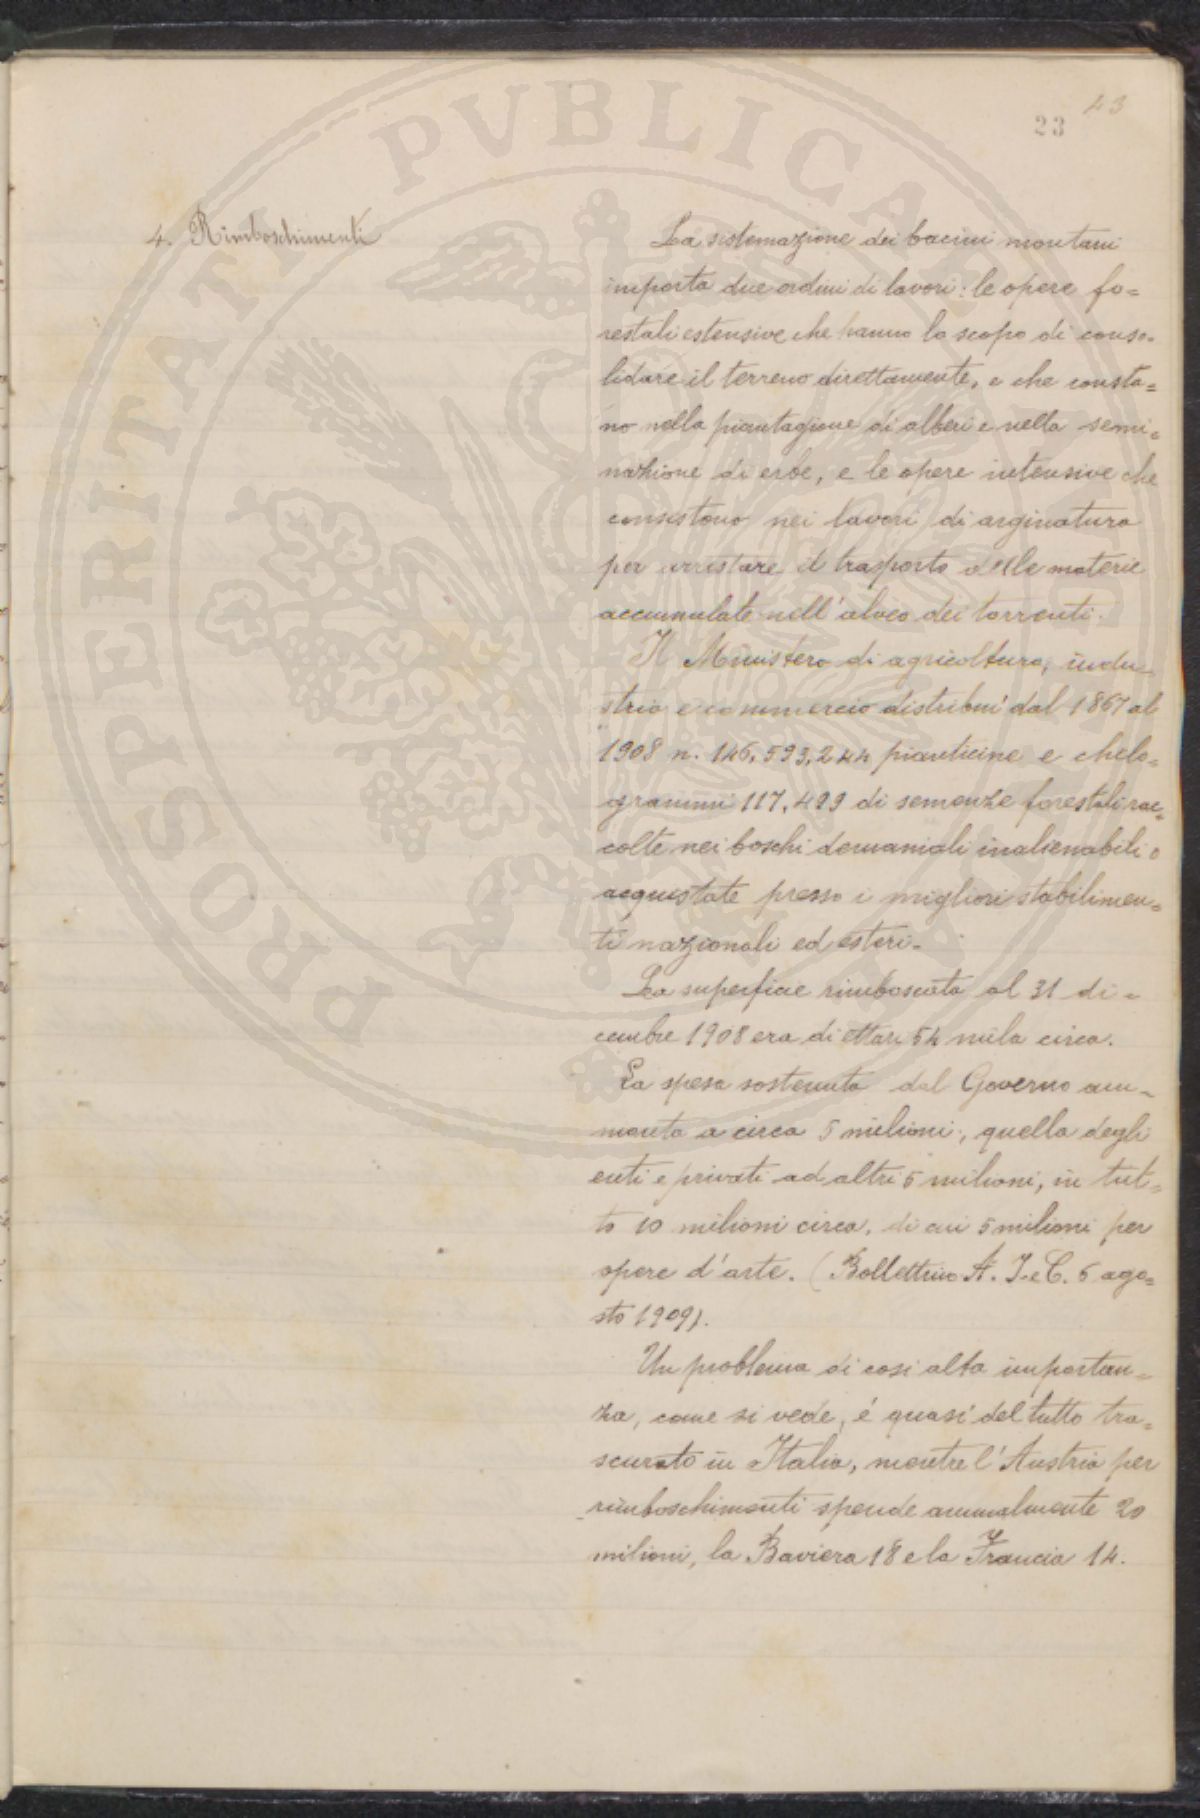 43
23
PROSPERITATI PVBLICAE
4. Rimboschimenti
La sistemazione dei bacini montani
importa due ordini di lavori: le opere fo=
restali estensive che hanno lo scopo di conso-
lidare il terreno direttamente, e che consta=
no nella piantagione di alberi e nella semi=
nazione di erbe, e le opere intensive che
consistono nei lavori di arginatura
per arrestare il trasporto delle materie
accumulate nell'alveo dei torrenti.
Il Ministero di agricoltura, indu-
stria e commercio distribuì dal 1867 al
1908 n. 146,593,244 pianticine e chilo=
grammi 117,499 di semenze forestali rac=
colte nei boschi demaniali inalienabili o
acquistate presso i migliori stabilimen=
ti nazionali ed esteri.
La superficie rimboscata al 31 di=
cembre 1908 era di ettari 54 mila circa.
La spesa sostenuta dal Governo am-
monta a circa 5 milioni; quella degli
enti e privati ad altri 5 milioni, in tut=
to 10 milioni circa, di cui 5 milioni per
opere d'arte. (Bollettino A. I. e C. 6 ago=
sto 1909).
Un problema di così alta importan=
za, come si vede, é quasi del tutto tra=
scurato in Italia, mentre l'Austria per
rimboschimenti spende annualmente 20
milioni, la Baviera 18 e la Francia 14.